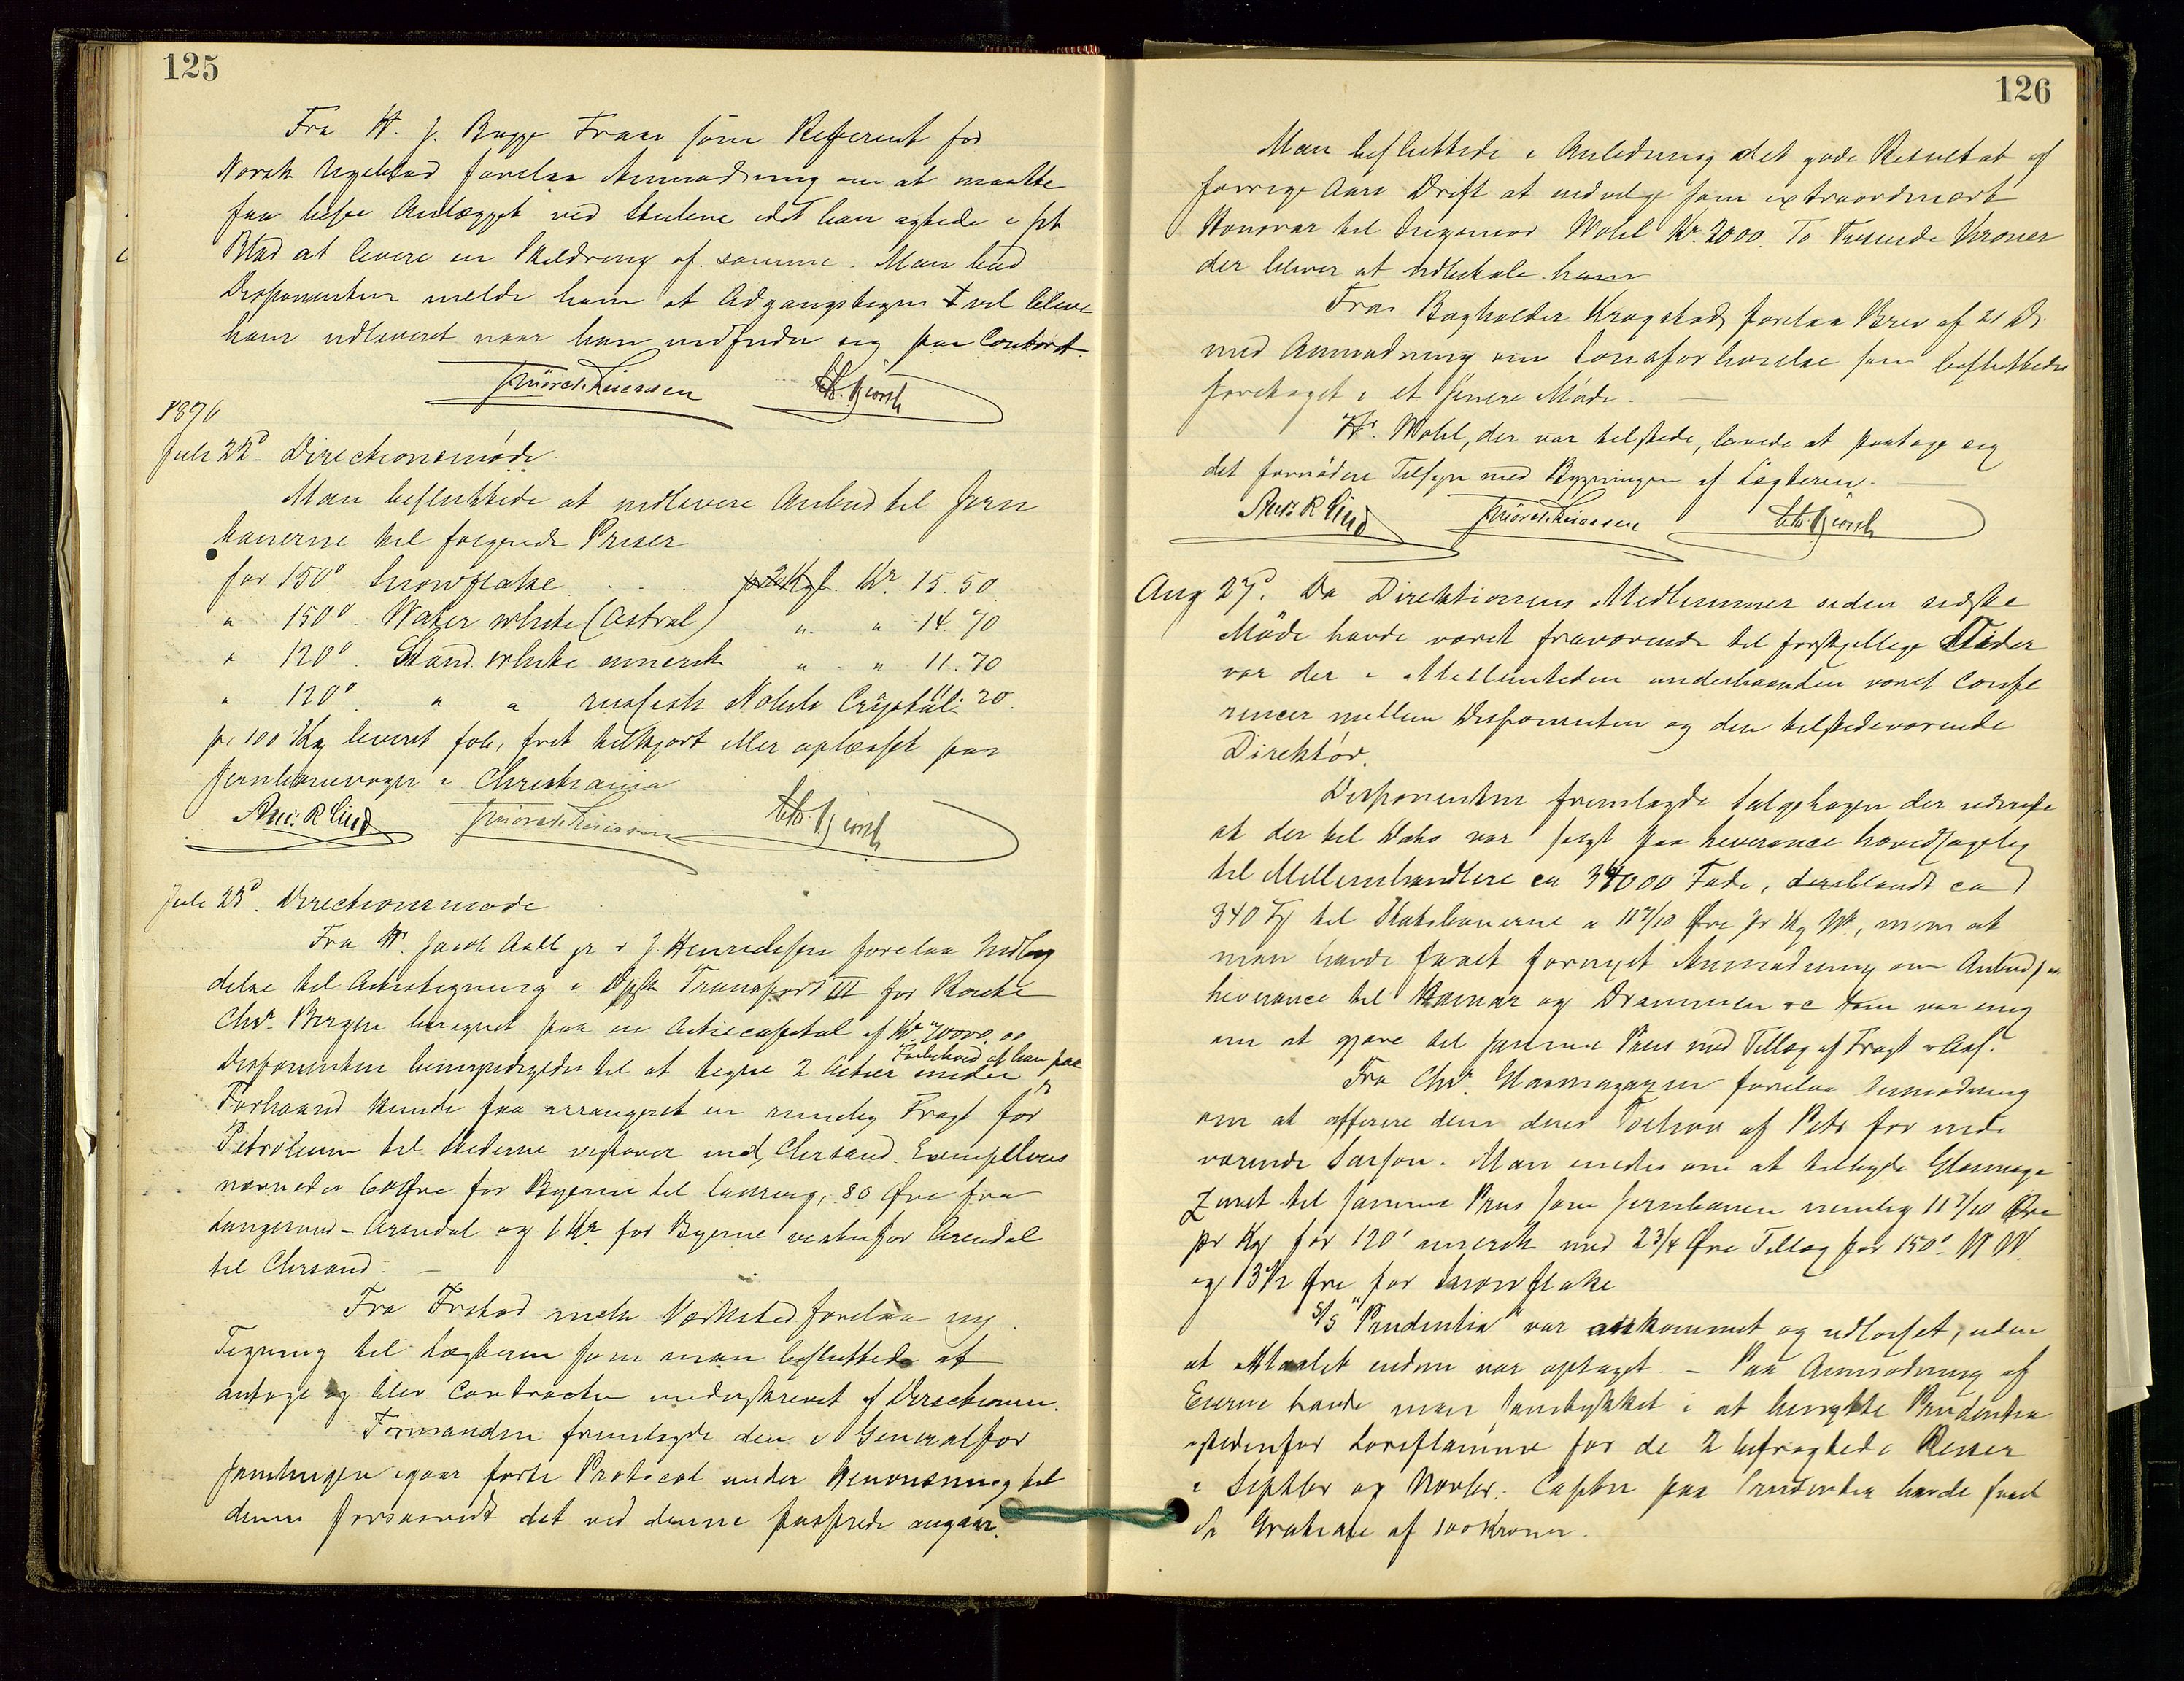 125
Fra H. J. Bugge Fraas som Referent for
Norsk Ugeblad forelaa Anmodning om at maatte
faa bese Anlægget ved Skulene idet han agtede i sit
Blad at levere en Skildring af samme. Man bad
Disponenten melde ham at Adgangstegn vil blive
ham udleveret naar han indfinder sig paa Contoret.
1896
Juli 22d. Directionsmøde.
Man besluttede at indlevere Anbud til Jern
banerne til følgende Priser
for 150° Snowflake . . . Kr. 15.50
" 150° Water white (Astral) " " 14.70
" 120° Stand. white amerik " " 11.70
" 120° " " russisk Nobels Crystal 11.20.
pr 100 Kg leveret fob, frit tilkjørt eller oplæsset paa
Jernbanevogn i Christiania
Juli 23d. Directionsmøde
Fra Hr Jacob Aall jr & J. Henrichsen forelaa Indby
delse til Actietegning i D/sk Transport III for Routen
Chr. Bergen beregnet paa en Actiecapital af Kr 70000.00
Disponenten bemyndigedes til at tegne 2 Actier under Forbehold at han paa
Forhaand kunde faa arrangeret en rimelig Fragt for
Petroleum til Stederne vestover ind. Chrsand. Exempelvis
nævnedes 60 Øre for Byerne til Laurvig, 80 Øre fra
Langesund - Arendal og 1 Kr for Byerne vestenfor Arendal
til Chrsand. —
Fra Ørstad mek Værksted forelaa ny
Tegning til Lægteren som man besluttede at
antage og blev Contracten underskrevet af Directionen.
Formanden fremlagde den i Generalfor
samlingen igaar førte Protocol under Henvisning til
denne forsaavidt det ved denne passerede angaar.
126
Man besluttede i Anledning det gode Resultat af
forrige Aars Drift at udvelge som extraordinært
Honorar til Ingeniør Wohl Kr. 2000. To Tusinde Kroner
der bliver at udbetale ham
Fra Bogholder Krogstad forelaa Brev af 21 ds
med Anmodning om Lønsforhøielse som besluttedes
foretaget i et senere Møde. —
Hr. Wohl, der var tilstede, lovede at paatage sig
det fornødne Tilsyn med Bygningen af Lægteren.
Aug 27d. Da Direktionens Medlemmer siden sidste
Møde havde været fraværende til forskjellige Tider
var der i Mellemtiden underhaanden været Confe
rencer mellem Disponenten og den tilstedeværende
Direktør.
Disponenten fremlagde Salgsbogen der udviste
at der til Dato var solgt paa Leverance hovedsagelig
til Mellemhandlere ca 34000 Fade, deriblandt ca
340 Fd til Statsbanerne a 11 7/10 Øre pr Kg W, men at
man havde faaet fornyet Anmodning om Anbud paa
Leverance til Hamar og Drammen &c Man var enig
om at gjøre det samme Pris med Tillæg af Fragt & Ass.
Fra Chr. Glasmagazin forelaa Anmodning
om at offerere dem deres Behov af Petr for inde
værende Saison. Man enedes om at tilbyde Glasmaga
zinet til samme Pris som Jernbanen nemlig 11 7/10 Øre
pr Kg for 120° amerik med 2 3/4 Øre Tillæg for 150° W W
og 3 1/2 Øre " for Snowflake
S/S "Prudentia" var ankommet og udlosset, uden
at Maalet endnu var optaget. — Paa Anmodning af
Eierne havde man samtykket i at benytte Prudentia
istedenfor Loreflamme for de 2 befragtede Reiser
i Septbr og Novbr. Capten paa Prudentia havde faaet
en Gratiale af 100 Kroner.